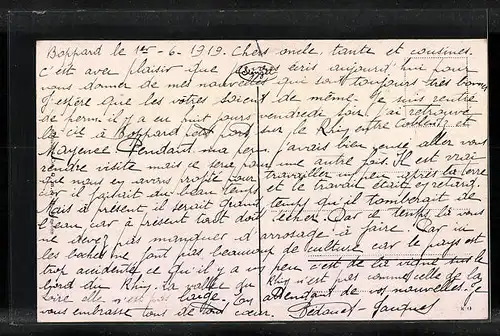 Boppard le 1er - 6. 1919. Chers oncle, tante et cousines.
C'est avec plaisir que je vous écris aujourd'hui pour
vous donner de mes nouvelles qui sont toujours très bonnes
J'espère que les votres soient de même. Je suis rentré
de perm. il y a eu huit jours vendredi soir. J'ai retrouvé
la Cie à Boppard sur le Rhin entre Coblentz et
Mayence. Pendant ma perm. j'avais bien pensé aller vous
rendre visite mais ce sera pour une autre fois. Il est vrai
que nous en avons profité pour travailler un peu après la terre
car il faisait du beau temps et le travail était en retard.
Mais à présent il serait grand temps qu'il tomberait de
l'eau car à présent tout doit sécher. Par ce temps là vous
ne devez pas manquer d'arrosage à faire. Par ici
les boches ne font pas beaucoup de culture car le pays est
trop accidenté ce qu'il y a vos peu c'est de la vigne sur le
bord du Rhin. La vallée du Rhin n'est pas comme celle de la
Loire elle n'est pas large. En attendant de vos nouvelles. Je
vous embrasse tous de tout cœur. Jacques